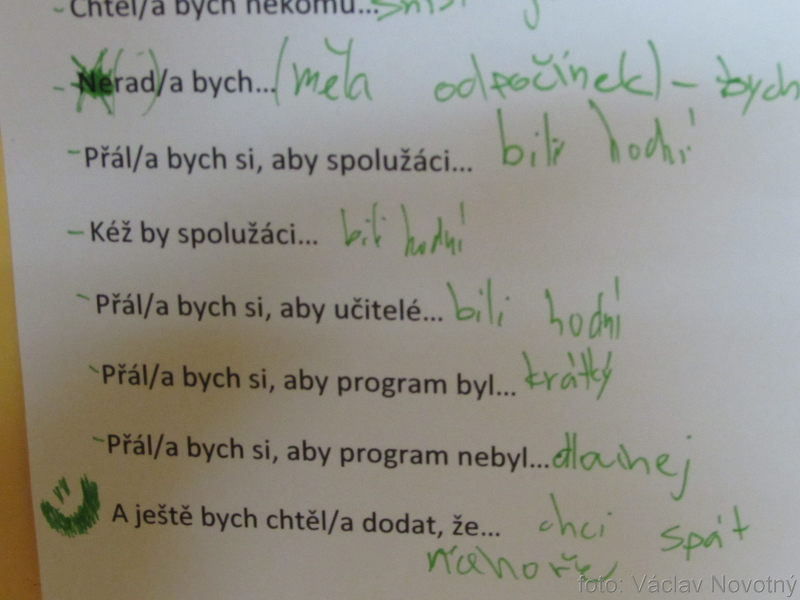 - Chtěl/a bych někomu...
- Nerad/a bych... (měla odpočinek) - bych
- Přál/a bych si, aby spolužáci... bili hodní
- Kéž by spolužáci... bili hodní
- Přál/a bych si, aby učitelé... bili hodní
- Přál/a bych si, aby program byl... krátký
- Přál/a bych si, aby program nebyl... dlouhej
A ještě bych chtěl/a dodat, že... chci spát
nahoře
foto: Václav Novotný